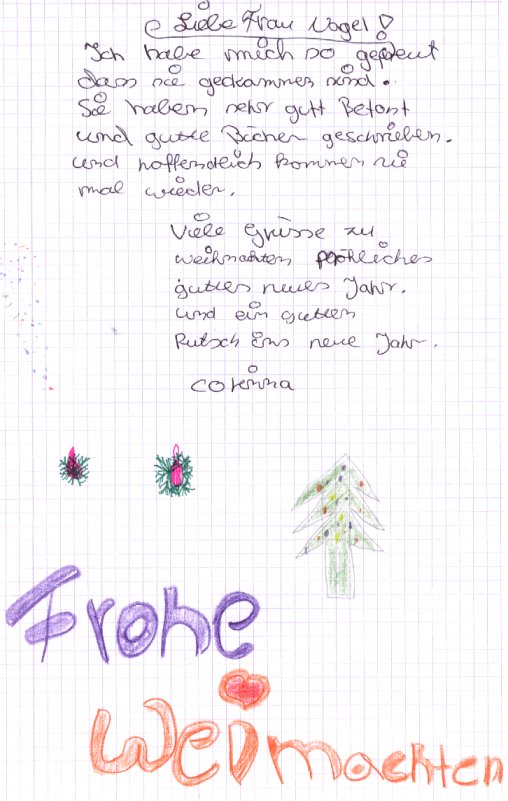 Liebe Frau Vogel!
Ich habe mich so gefreut
dass sie gekommen sind.
Sie haben sehr gutt Betont
und gutte Bücher geschrieben.
und hoffendleich kommen sie
mal wieder.
Viele Grüsse zu
weihnachten fröhliches
guttes neues Jahr.
und ein gutten
Rutsch ins neue Jahr.
Corinna
Frohe
Weihnachten